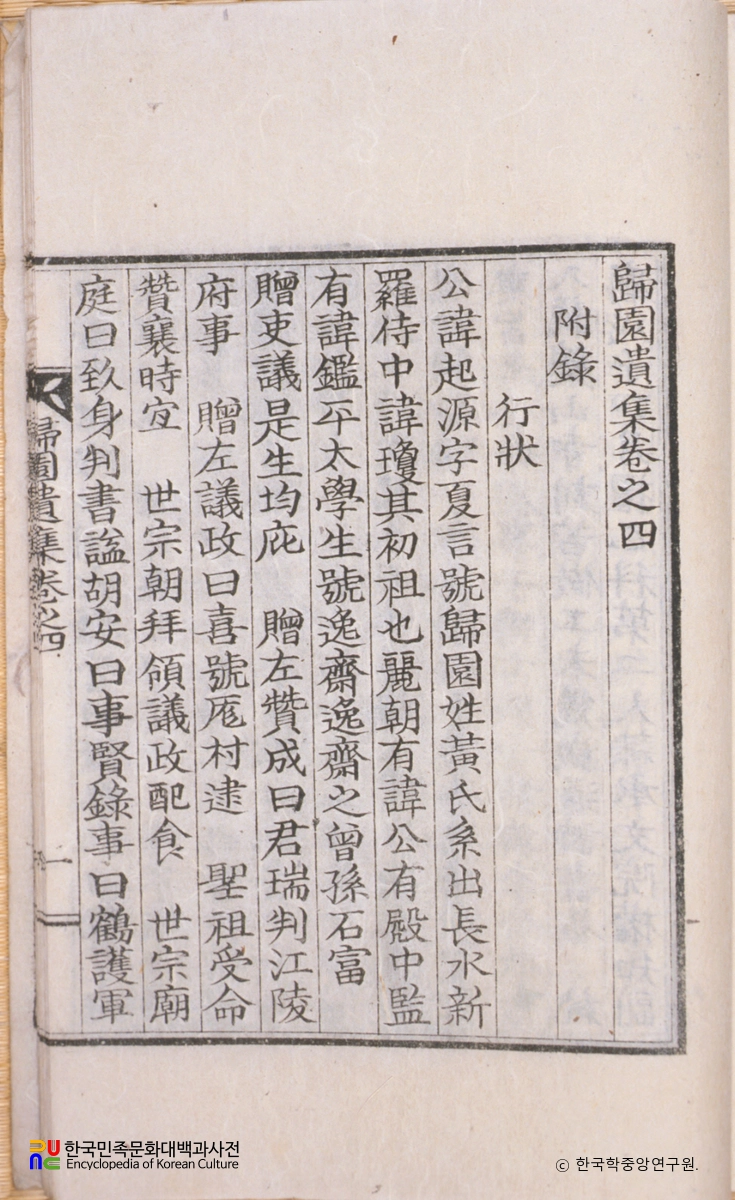 歸園遺集卷之四
附錄
行狀
公諱起源字夏言號歸園姓黃氏系出長水新
羅侍中諱瓊其初祖也麗朝有諱公有殿中監
有諱鑑平太學生號逸齋逸齋之曾孫石富
贈吏議是生均庇　贈左贊成曰君瑞判江陵
府事　贈左議政曰喜號厖村逮　聖祖受命
贊襄時宜　世宗朝拜領議政配食　世宗廟
庭曰致身判書謚胡安曰事賢錄事曰鶴護軍
歸園遺集卷之四
一
한국민족문화대백과사전
Encyclopedia of Korean Culture
ⓒ 한국학중앙연구원.